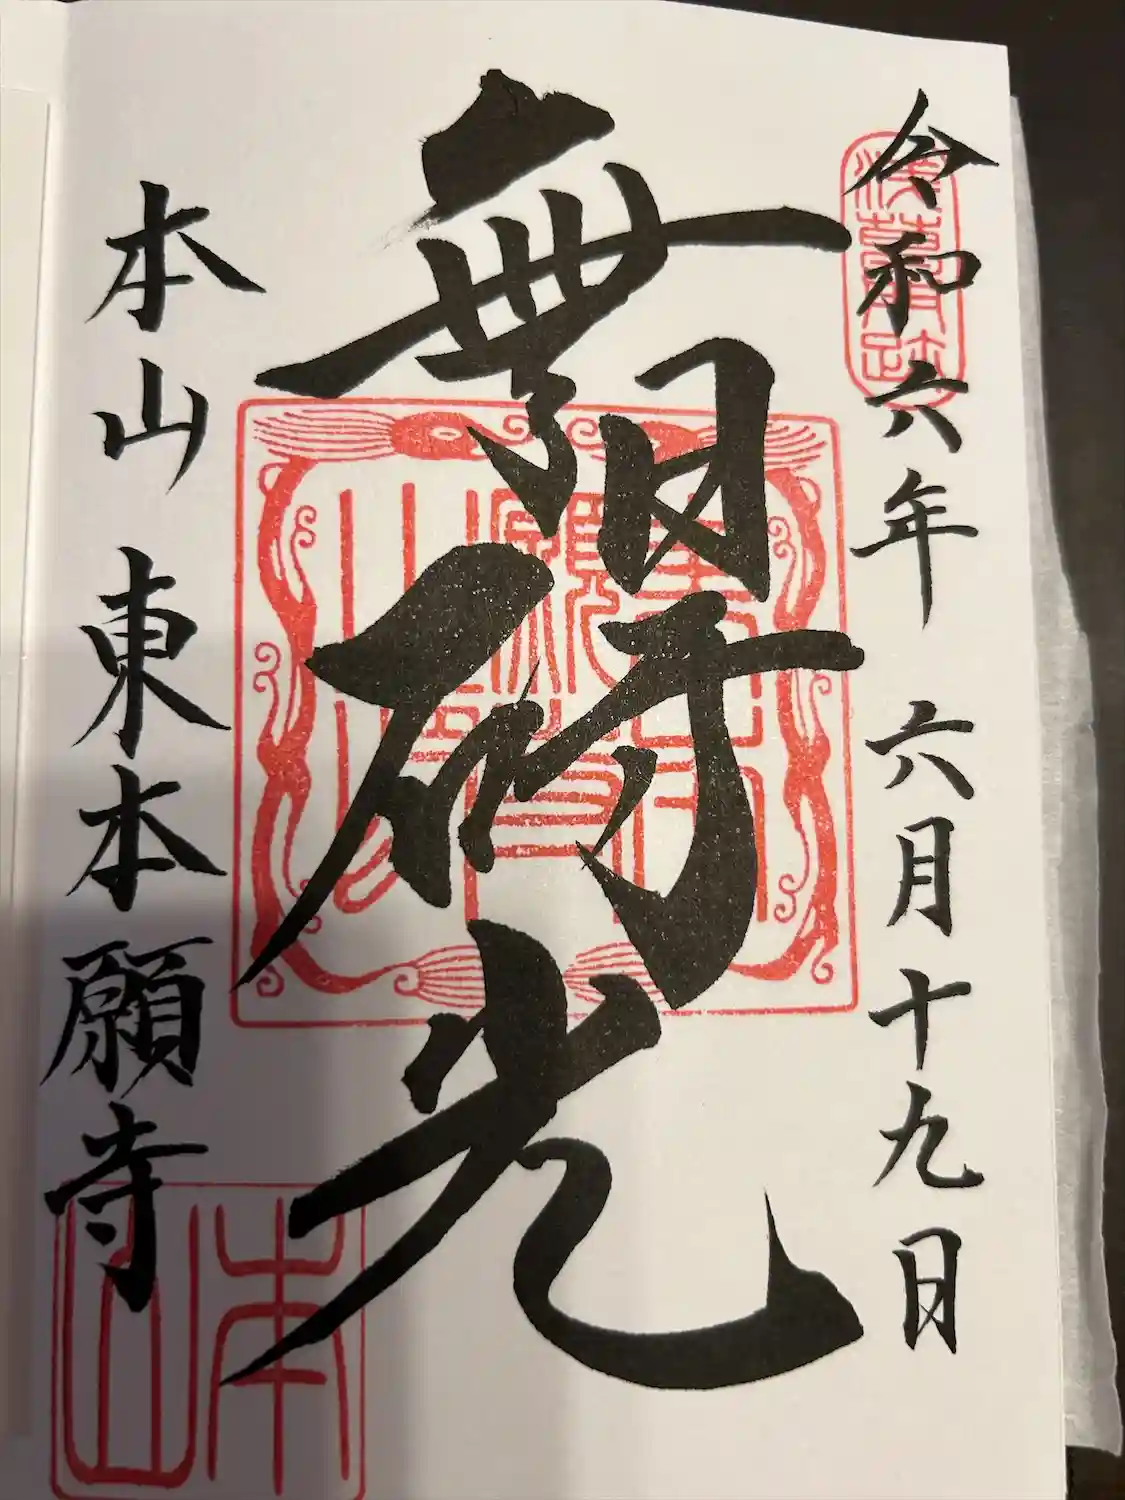 令和六年 六月十九日
無碍光
本山 東本願寺
本山